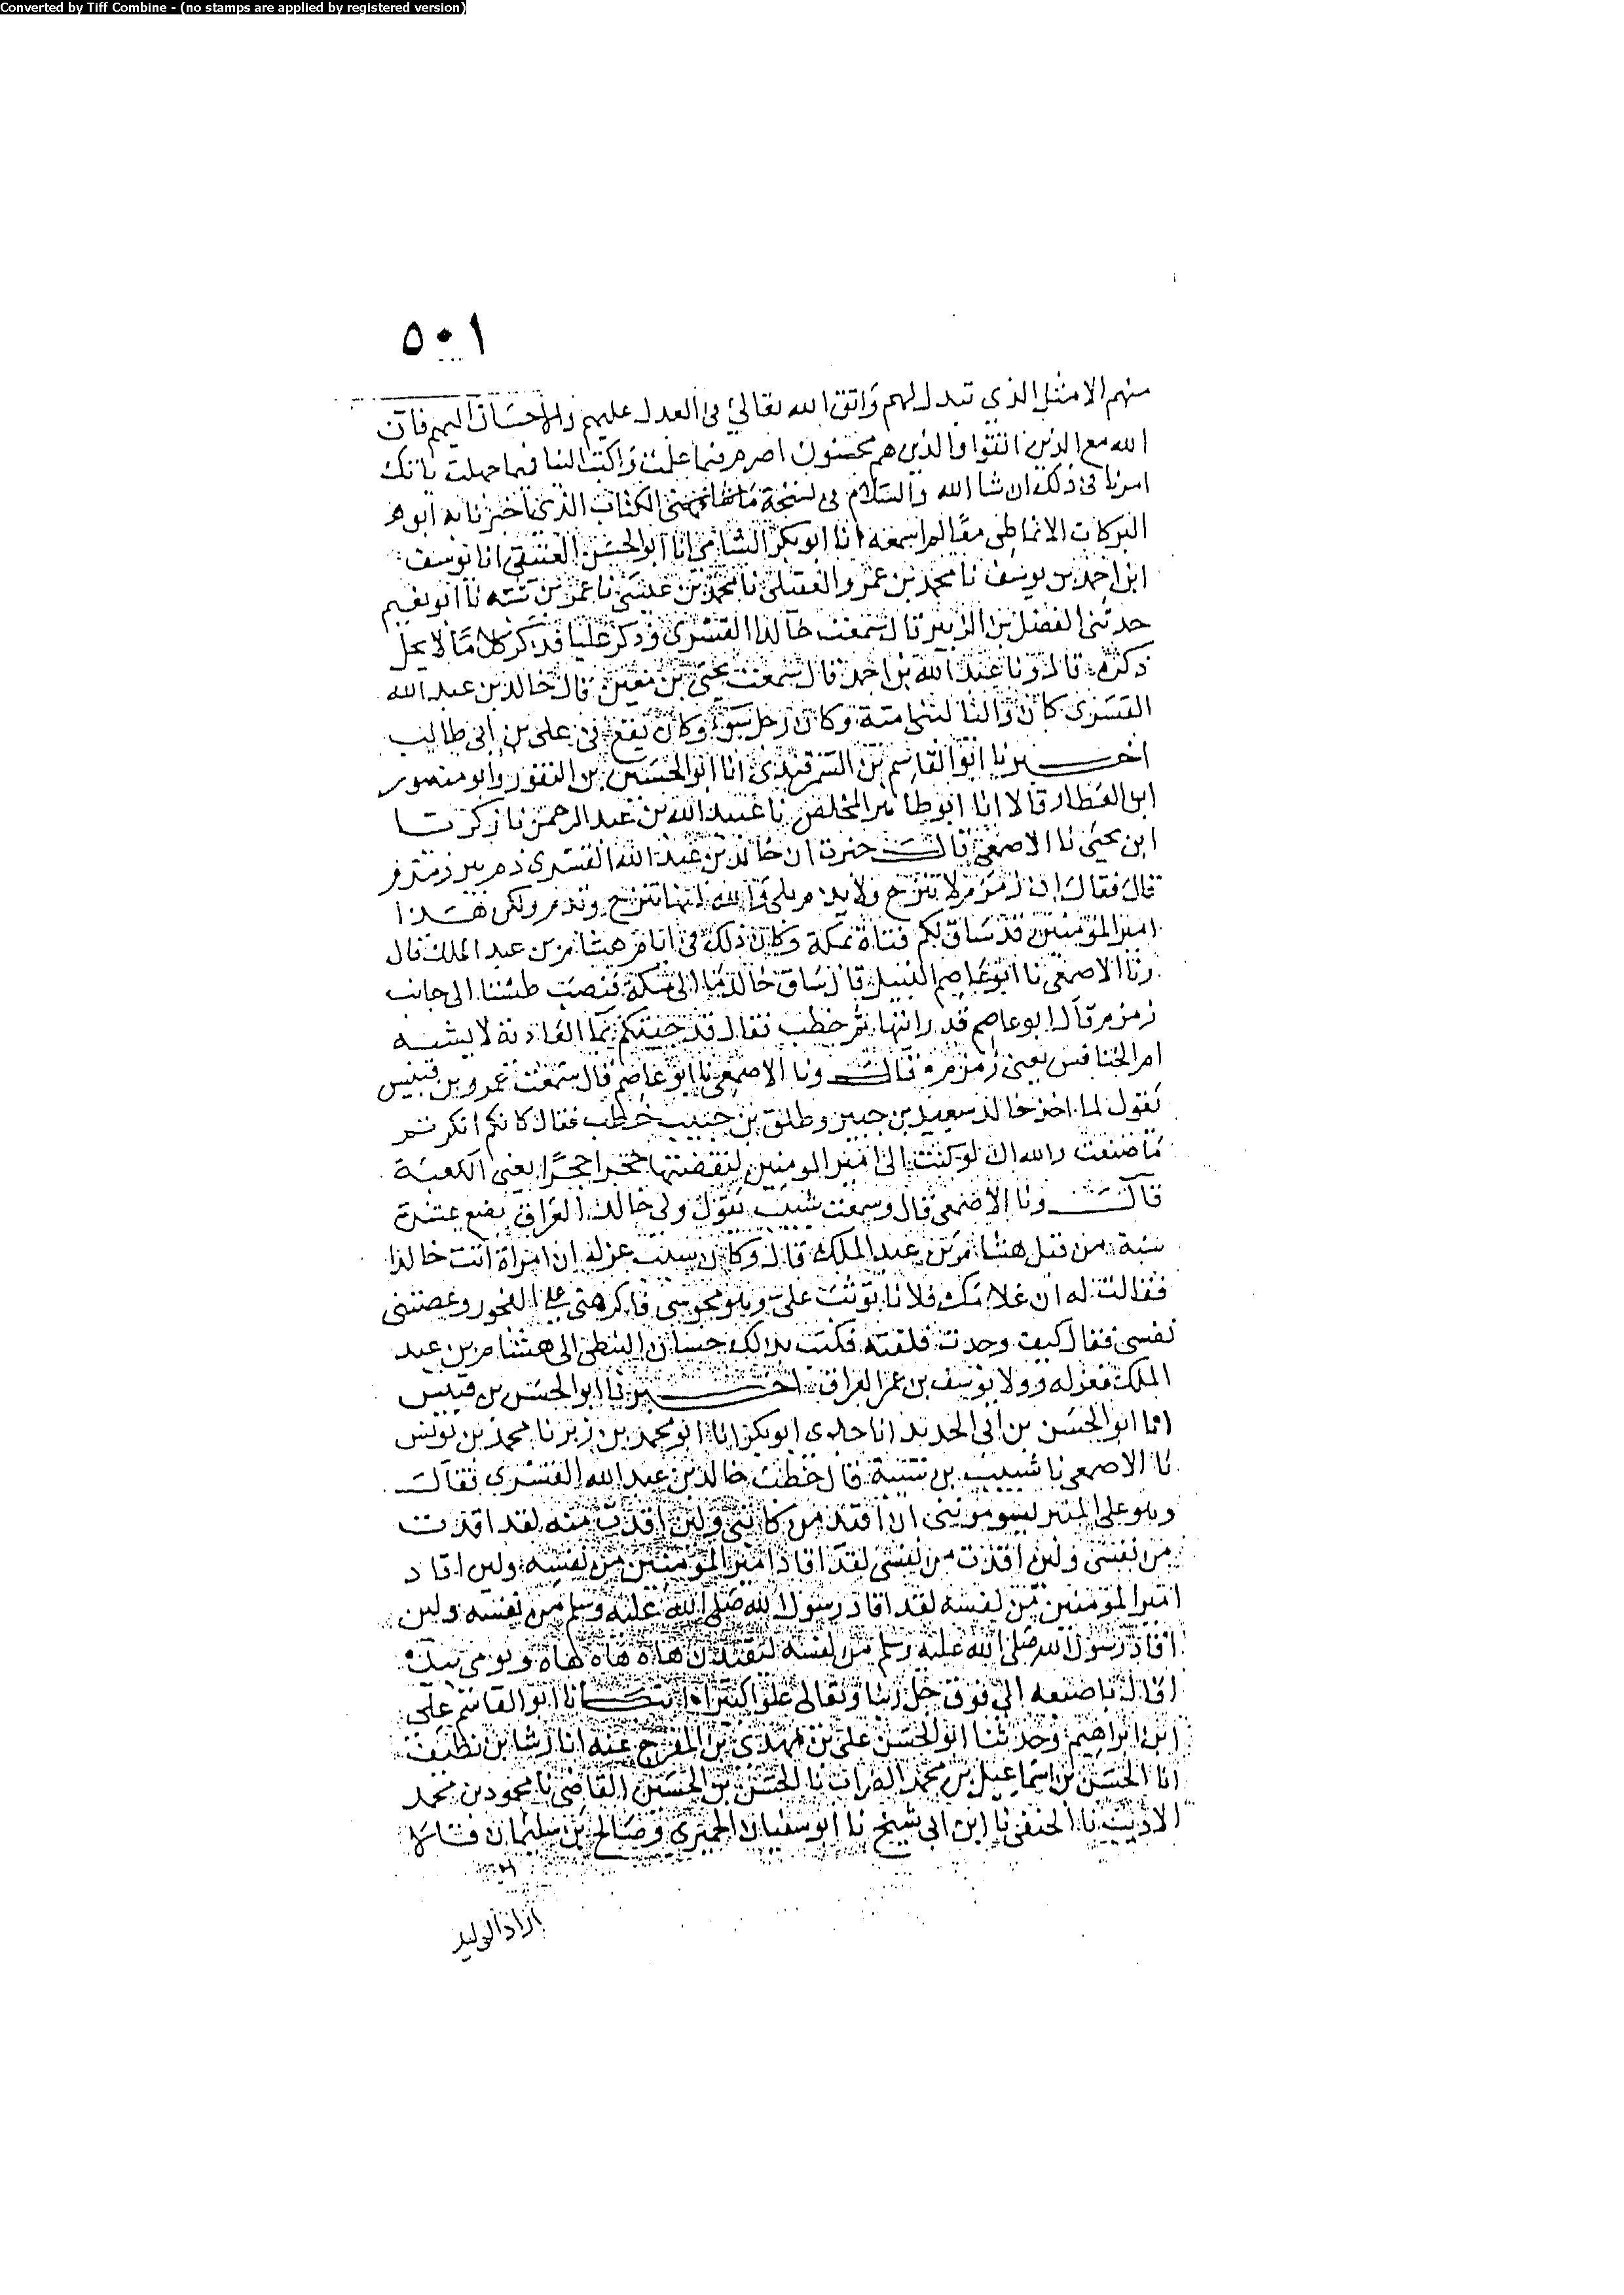 Converted by Tiff Combine - (no stamps are applied by registered version)
٥٠١
منهم الامثل الذي تبدل لهم واتق الله تعالى في العدل عليهم والاحسان اليهم فان
الله مع الذين اتقوا والذين هم محسنون اصرم فيما علمت واكتب الينا فيما جهلت ياتك
امرنا في ذلك ان شا الله والسلام في نسخة ما شافهني الكتاب الذي اخبرنا به ابو
البركات الانماطي مقالم اسمعه انا ابو بكر الشامي انا ابو الحسن العتيقي انا يوسف
ابن احمد بن يوسف نا محمد بن عمرو العقيلي نا محمد بن عيسى نا عمر بن شبه نا ابو نعيم
حدثني الفضل بن الزبير قال سمعت خالدا القسري وذكر عليا فذكر كلاما لا يحل
ذكره قال ونا عبد الله بن احمد قال سمعت يحيى بن معين قال خالد بن عبد الله
القسري كان واليا لبني امية وكان رجل سو وكان يقع في علي بن ابي طالب
اخبرنا ابو القاسم بن السمرقندي انا ابو الحسين بن النقور وابو منصور
ابن العطار قالا انا ابو طاهر المخلص نا عبيد الله بن عبد الرحمن نا زكريا
ابن يحيى نا الاصمعي قال خبرت ان خالد بن عبد الله القسري ذم بير زمزم
قال فقال ان زمزم لا تنزح ولا تذم بلى والله انها تنزح وتذم ولكن هذا
امير المؤمنين قد ساق لكم قناة بمكة وكان ذلك في ايام هشام بن عبد الملك قال
ونا الاصمعي نا ابو عاصم النبيل قال ساق خالد ما الى مكة فنصب طستا الى جانب
زمزم قال ابو عاصم قد رايتها ثم خطب فقال قد جيتكم بما الغادية لا يشبه
ام الخنافس يعني زمزم قال ونا الاصمعي نا ابو عاصم قال سمعت عمرو بن قيس
يقول لما اخذ خالد سعيد بن جبير وطلق بن حبيب خطب فقال كانكم انكرتم
ما صنعت والله ان لو كتب الى امير المومنين لنقضتها حجرا حجرا يعني الكعبة
قال ونا الاصمعي قال وسمعت شبيب يقول ولي خالد العراق بضع عشرة
سنة من قبل هشام بن عبد الملك قال وكان سبب عزله ان امراة اتت خالدا
فقالت له ان غلامك فلانا توثب علي وهو مجوسي فاكرهني على الفجور وغصبني
نفسي فقال كيف وجدت قلفته فكتب بذلك حسان النبطي الى هشام بن عبد
الملك فعزله وولا يوسف بن عمر العراق اخبرنا ابو الحسن بن قبيس
انا ابو الحسن بن ابي الحديد انا جدي ابو بكر انا ابو محمد بن زبر نا محمد بن يونس
نا الاصمعي نا شبيب بن شيبة قال خطب خالد بن عبد الله القسري فقال
وهو على المنبر يسومونني ان اقيد من كاتبي ولين اقدت منه لقد اقدت
من نفسي ولين اقدت من نفسي لقد اقاد امير المؤمنين من نفسه ولين اقاد
امير المؤمنين من نفسه لقد اقاد رسول الله صلى الله عليه وسلم من نفسه ولين
اقاد رسول الله صلى الله عليه وسلم من نفسه ليقيدن هاه هاه هاه ويومي بيده
قال باصبعه الى فوق جل ربنا وتعالى علوا كبيرا انبانا ابو القاسم علي
ابن ابراهيم وحدثنا ابو الحسن علي بن مهدي بن المفرج عنه انا رشا بن نظيف
انا الحسن بن اسماعيل بن محمد الضراب نا الحسن بن الحسين القاضي نا محمود بن محمد
الاديب نا الحنفي نا ابن ابي شيخ نا ابو سفيان الحميري وصالح بن سليمان قالا
اراد الوليد